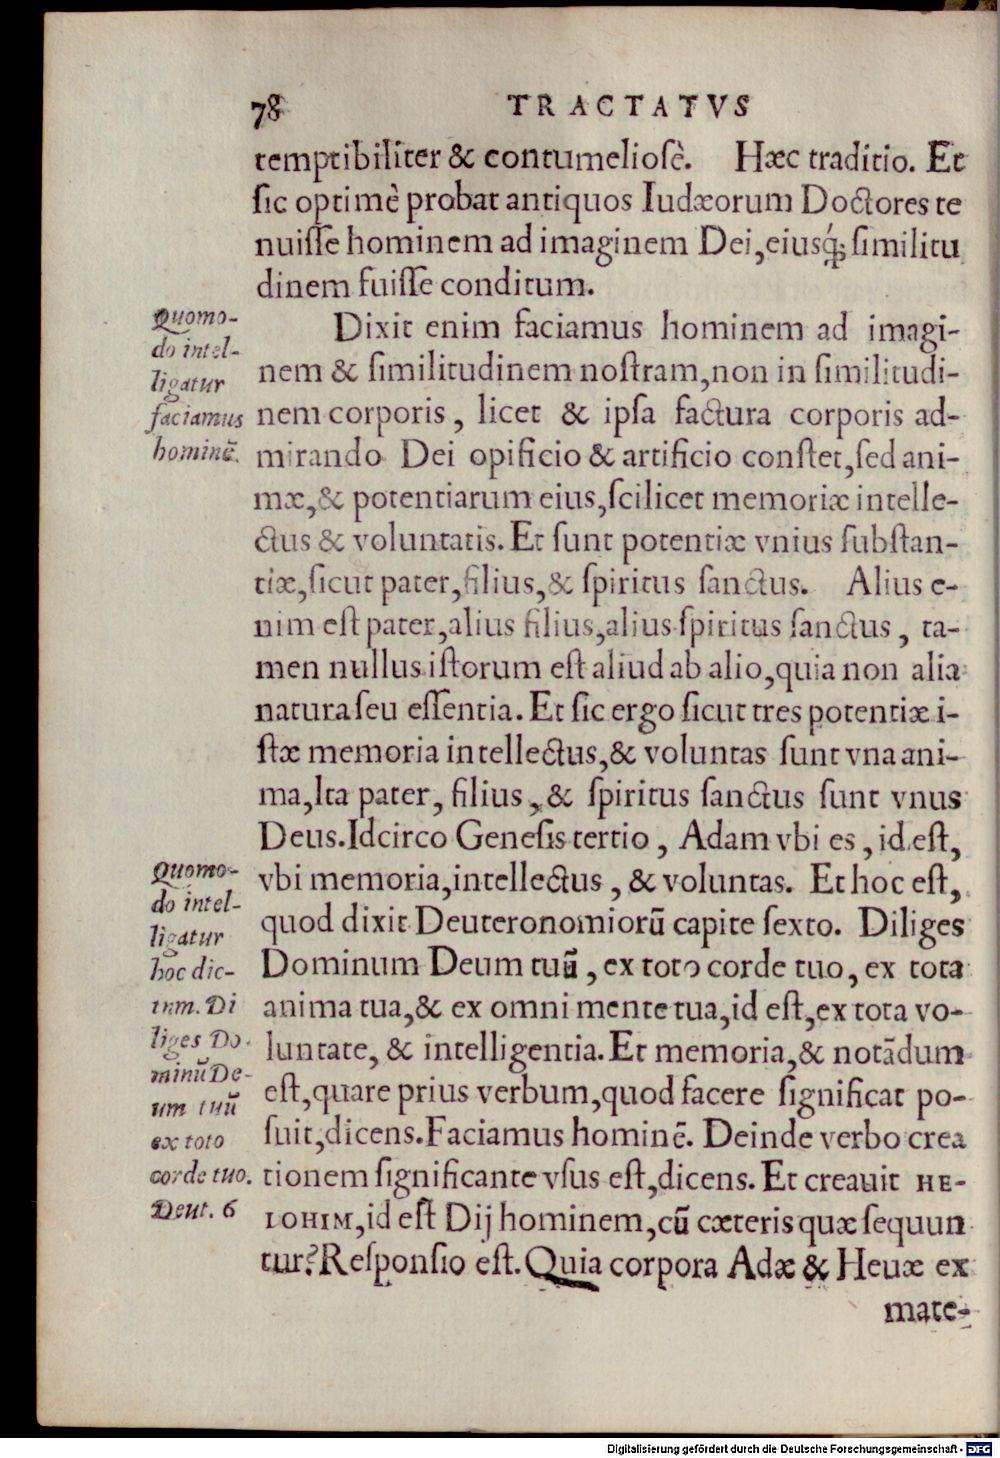 78 TRACTATVS
temptibiliter & contumeliosè. Hæc traditio. Et
sic optimè probat antiquos Iudæorum Doctores te
nuisse hominem ad imaginem Dei, eiusq́; similitu
dinem fuisse conditum.
Dixit enim faciamus hominem ad imagi-
nem & similitudinem nostram, non in similitudi-
nem corporis, licet & ipsa factura corporis ad-
mirando Dei opificio & artificio constet, sed ani-
mæ, & potentiarum eius, scilicet memoriæ intelle-
ctus & voluntatis. Et sunt potentiæ vnius substan-
tiæ, sicut pater, filius, & spiritus sanctus. Alius e-
nim est pater, alius filius, alius spiritus sanctus, ta-
men nullus istorum est aliud ab alio, quia non alia
natura seu essentia. Et sic ergo sicut tres potentiæ i-
stæ memoria intellectus, & voluntas sunt vna ani-
ma, Ita pater, filius, & spiritus sanctus sunt vnus
Deus. Idcirco Genesis tertio, Adam vbi es, id est,
vbi memoria, intellectus, & voluntas. Et hoc est,
quod dixit Deuteronomiorū capite sexto. Diliges
Dominum Deum tuū, ex toto corde tuo, ex tota
anima tua, & ex omni mente tua, id est, ex tota vo-
luntate, & intelligentia. Et memoria, & notādum
est, quare prius verbum, quod facere significat po-
suit, dicens. Faciamus hominē. Deinde verbo crea
tionem significante vsus est, dicens. Et creauit HE-
LOHIM, id est Dij hominem, cū cæteris quæ sequun
tur? Responsio est. Quia corpora Adæ & Heuæ ex
mate-
Quomo-
do intel-
ligatur
faciamus
hominē.
Quomo-
do intel-
ligatur
hoc dic-
tum. Di
liges Do-
minū De-
um tuū
ex toto
corde tuo.
Deut. 6
Digitalisierung gefördert durch die Deutsche Forschungsgemeinschaft - DFG